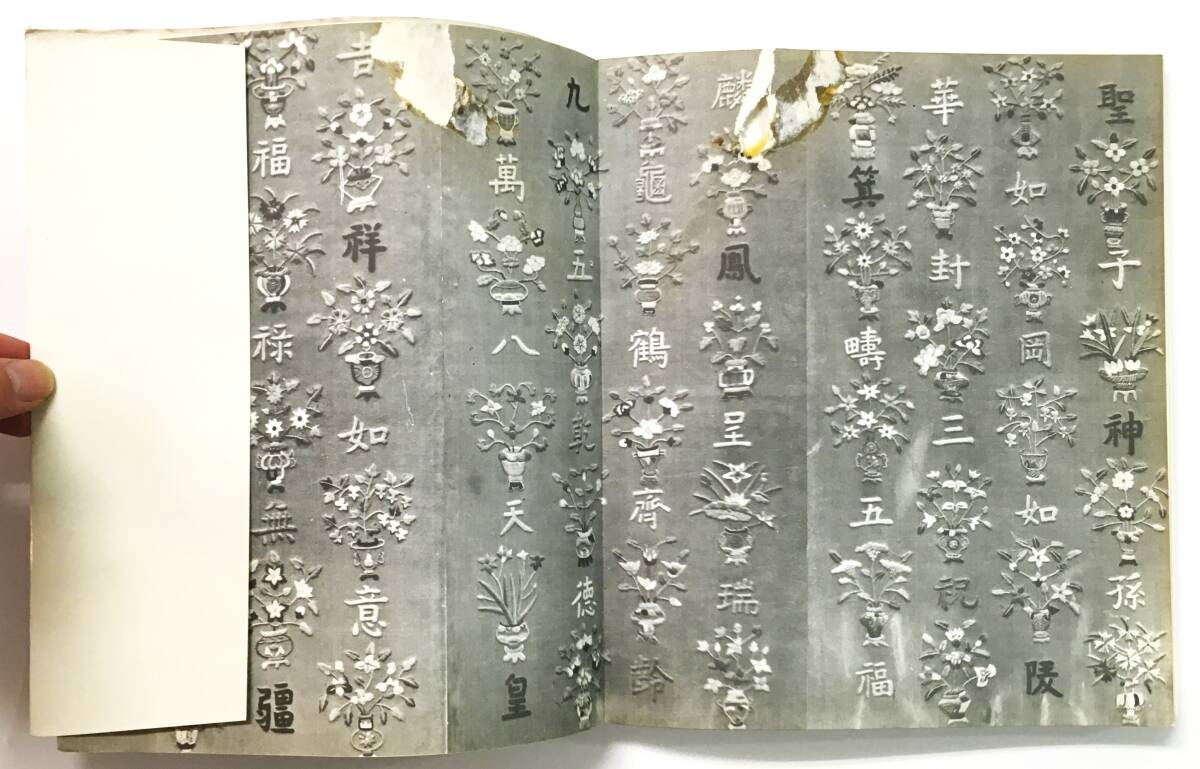 聖子神孫
如岡如陵
華封三祝
箕疇五福
麟鳳呈瑞
龜鶴齊齡
九五乾徳
萬八天皇
吉祥如意
福禄無疆